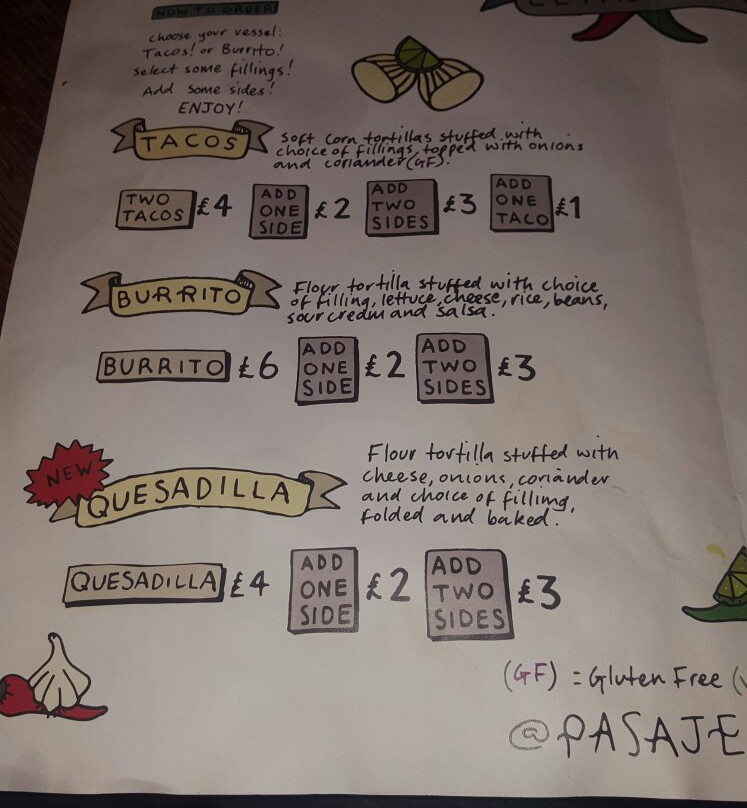 HOW TO ORDER
choose your vessel:
Tacos! or Burrito!
select some fillings!
Add some sides!
ENJOY!
TACOS
Soft Corn tortillas stuffed with
choice of fillings, topped with onions
and coriander (GF).
TWO
TACOS
£4
ADD
ONE
SIDE
£2
ADD
TWO
SIDES
£3
ADD
ONE
TACO
£1
BURRITO
Flour tortilla stuffed with choice
of filling, lettuce, cheese, rice, beans,
sour cream and salsa.
BURRITO
£6
ADD
ONE
SIDE
£2
ADD
TWO
SIDES
£3
NEW
QUESADILLA
Flour tortilla stuffed with
cheese, onions, coriander
and choice of filling,
folded and baked.
QUESADILLA
£4
ADD
ONE
SIDE
£2
ADD
TWO
SIDES
£3
(GF) = Gluten Free (
@PASAJE